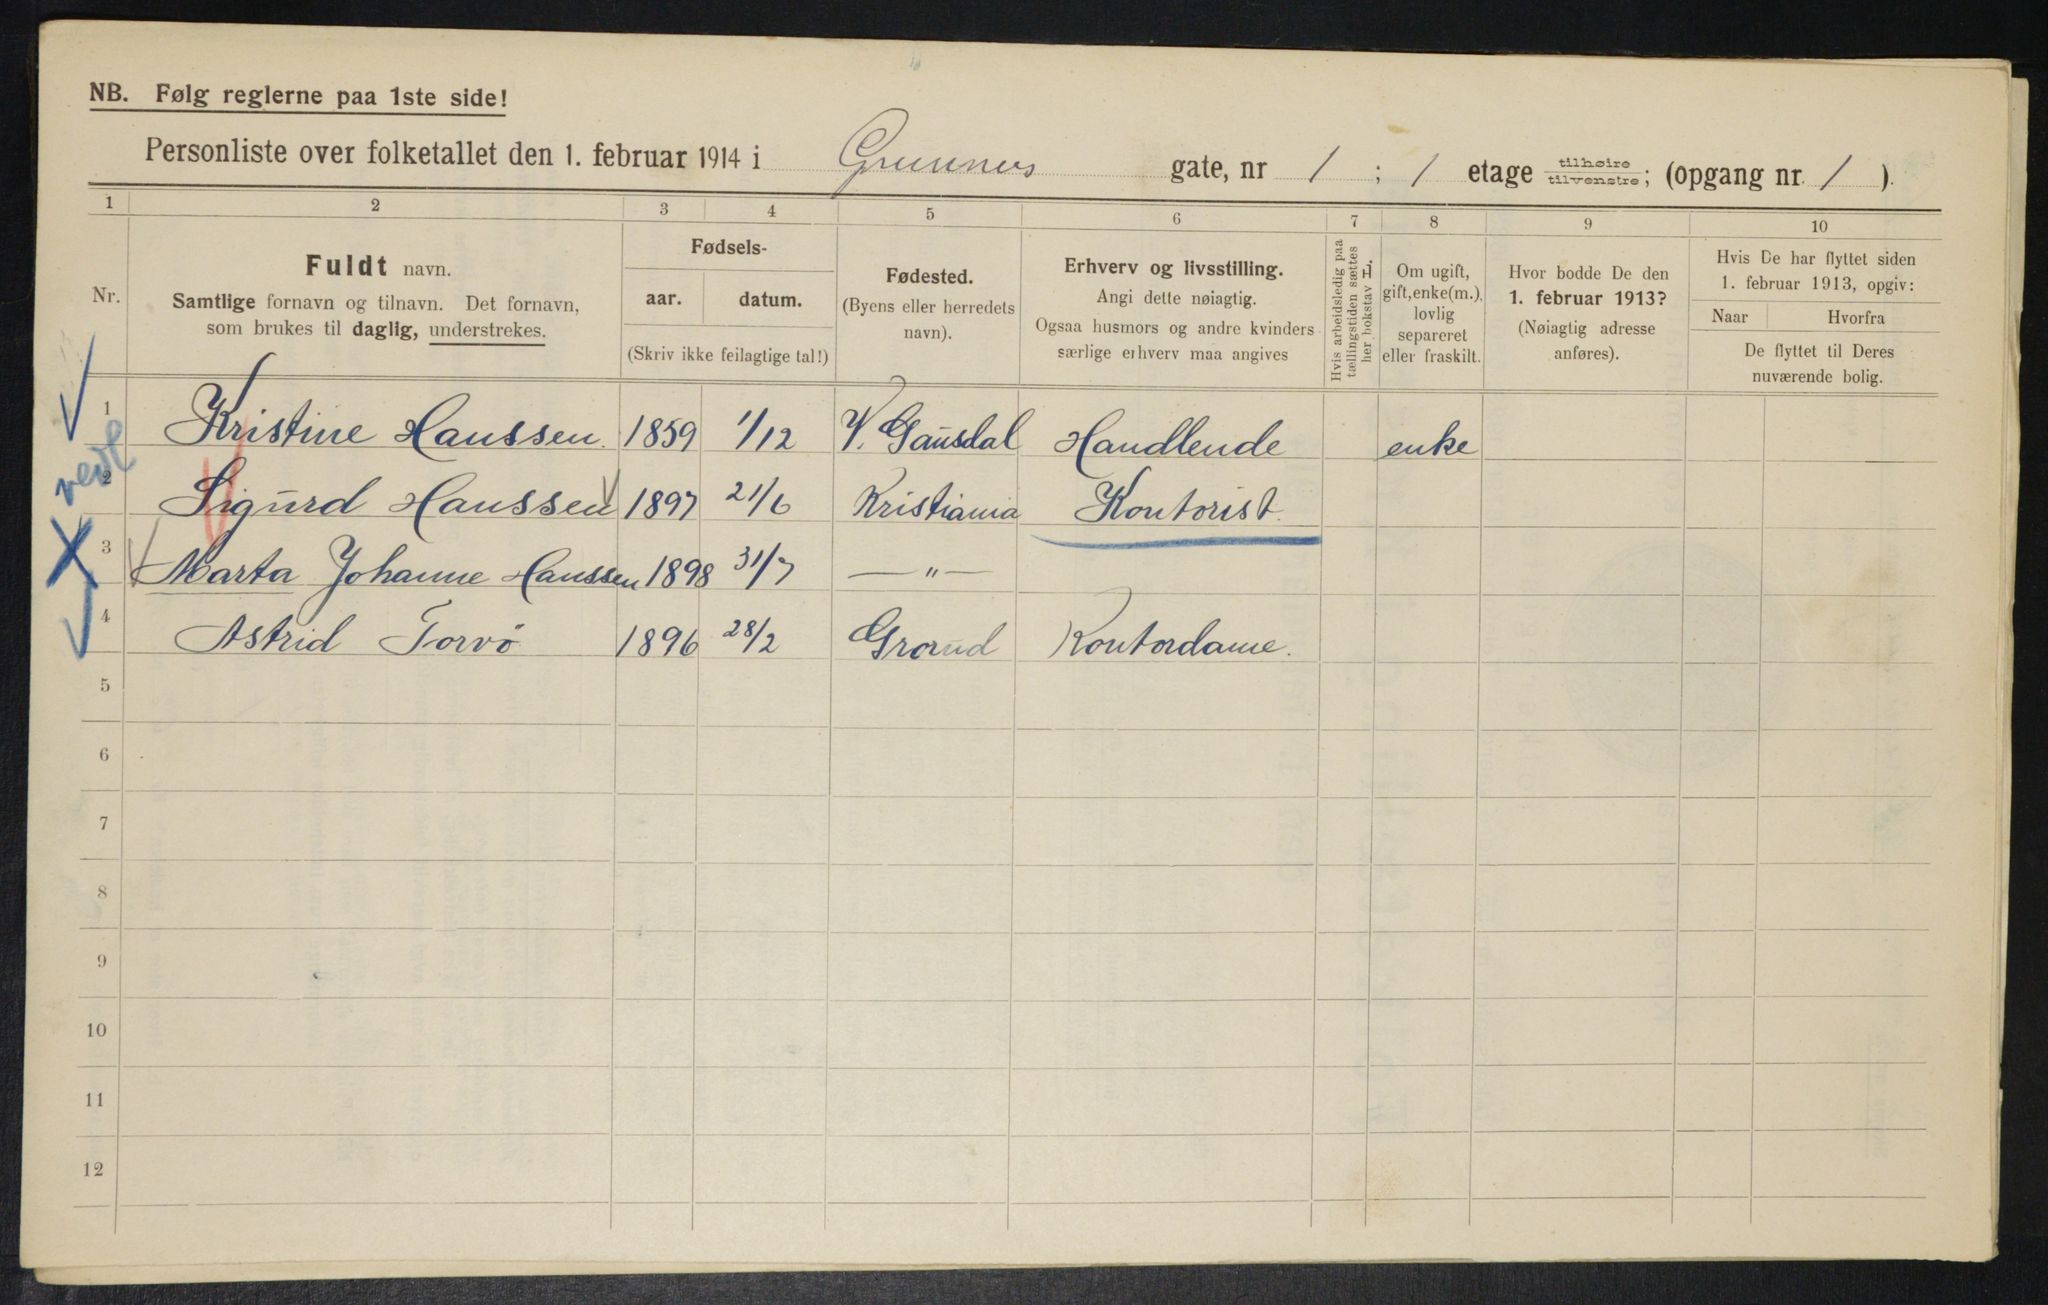 NB. Følg reglerne paa 1ste side!
Personliste over folketallet den 1. februar 1914 i Grunners gate, nr 1 ; 1 etage tilhøire tilvenstre; (opgang nr. 1 ).
1 2 3 4 5 6 7 8 9 10
Nr.
Fuldt navn.
Samtlige fornavn og tilnavn. Det fornavn,
som brukes til daglig, understrekes.
Fødsels-
aar. datum.
(Skriv ikke feilagtige tal!)
Fødested.
(Byens eller herredets
navn).
Erhverv og livsstilling.
Angi dette nøiagtig.
Ogsaa husmors og andre kvinders
særlige erhverv maa angives
Hvis arbeidsledig paa
tællingstiden sættes
her bokstav L.
Om ugift,
gift, enke(m.),
lovlig
separeret
eller fraskilt.
Hvor bodde De den
1. februar 1913?
(Nøiagtig adresse
anføres).
Hvis De har flyttet siden
1. februar 1913, opgiv:
Naar Hvorfra
De flyttet til Deres
nuværende bolig.
1 Kristine Hanssen. 1859 1/12 V. Gausdal Handlende enke
2 Sigurd Hanssen 1897 21/6 Kristiania Kontorist.
3 Marta Johanne Hanssen 1898 31/7 — " —
4 Astrid Torvö 1896 28/2 Grorud Kontordame.
5
6
7
8
9
10
11
12